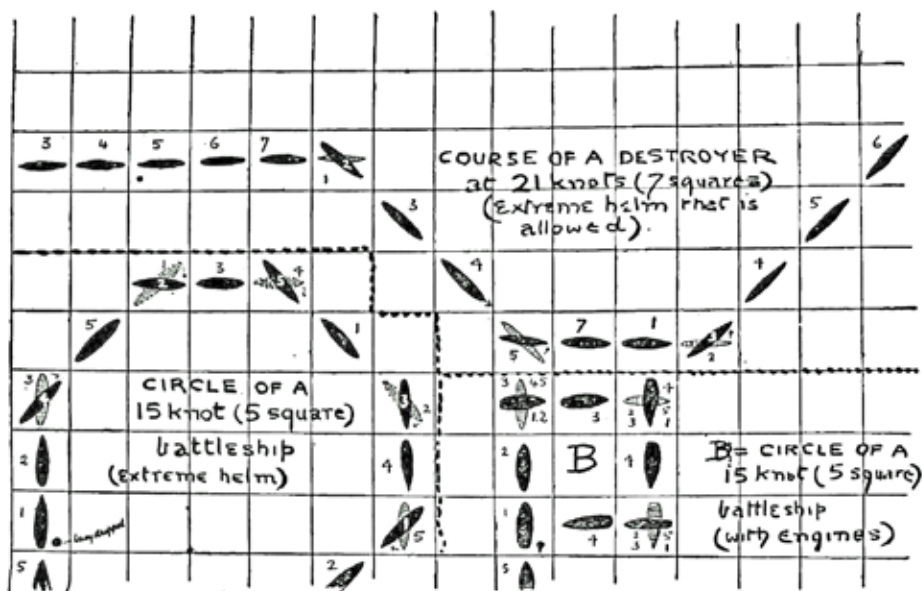 3 4 5 6 7
1
COURSE OF A DESTROYER
at 21 knots (7 squares)
(Extreme helm that is
allowed).
6
3
5
2 3 4
4
4
5
1
5
7
1
2
3
CIRCLE OF A
15 knot (5 square)
battleship
(Extreme helm)
2
3 45
12
3
4
2
3
5
1
2
4
2
B
4
B = CIRCLE OF A
15 knot (5 square)
battleship
(with engines)
1
5
1
4
2
3
5
1
5
2
5